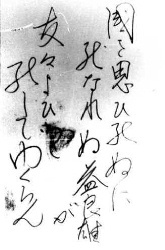 国を思ひ死ぬに
死なれぬ益良雄
が
友々よびつ
死してゆくらん